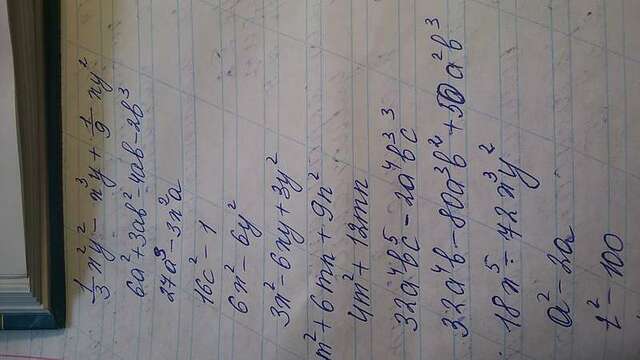 1/3 x²y² - x³y + 1/9 xy²
6a² + 3ab² - 4ab - 2b³
27a³ - 3x²a
16c² - 1
6x² - 6y²
3x² - 6xy + 3y²
m² + 6mn + 9n²
4m² + 12mn
32a⁴b⁵c - 2a⁴b³c³
32a⁴b - 80a³b² + 50a²b³
18x⁵ - 72x³y²
a² - 2a
t² - 100